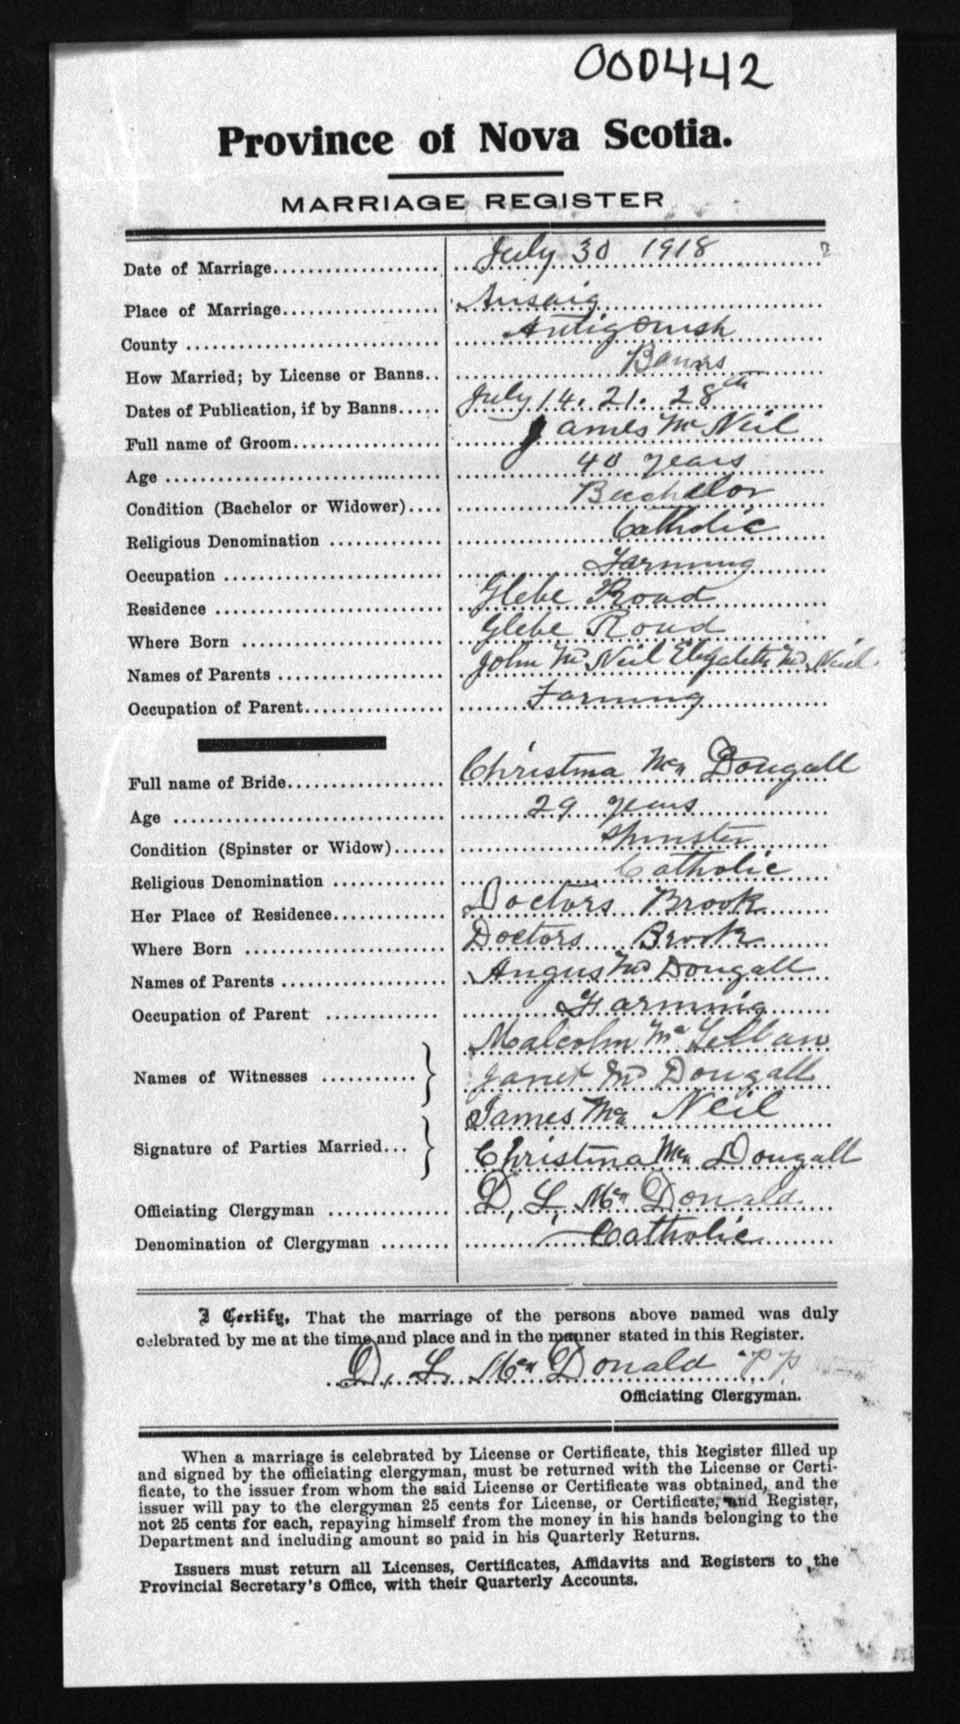 000442
Province of Nova Scotia.
MARRIAGE REGISTER
Date of Marriage July 30 1918
Place of Marriage Arisaig
County Antigonish
How Married; by License or Banns Banns
Dates of Publication, if by Banns July 14. 21. 28th
Full name of Groom James Mc Neil
Age 40 years
Condition (Bachelor or Widower) Bachelor
Religious Denomination Catholic
Occupation Farming
Residence Glebe Road
Where Born Glebe Road
Names of Parents John Mc Neil Elizabeth Mc Neil
Occupation of Parent Farming
Full name of Bride Christina Mc Dougall
Age 29 years
Condition (Spinster or Widow) Spinster
Religious Denomination Catholic
Her Place of Residence Doctors Brook
Where Born Doctors Brook
Names of Parents Angus Mc Dougall
Occupation of Parent Farming
Malcolm Mc Lellan
Names of Witnesses
Janet Mc Dougall
James Mc Neil
Signature of Parties Married
Christina Mc Dougall
Officiating Clergyman D. L. Mc Donald
Denomination of Clergyman Catholic
I Certify, That the marriage of the persons above named was duly
celebrated by me at the time and place and in the manner stated in this Register.
D. L. Mc Donald P P
Officiating Clergyman.
When a marriage is celebrated by License or Certificate, this Register filled up
and signed by the officiating clergyman, must be returned with the License or Certi-
ficate, to the issuer from whom the said License or Certificate was obtained, and the
issuer will pay to the clergyman 25 cents for License, or Certificate, and Register,
not 25 cents for each, repaying himself from the money in his hands belonging to the
Department and including amount so paid in his Quarterly Returns.
Issuers must return all Licenses, Certificates, Affidavits and Registers to the
Provincial Secretary's Office, with their Quarterly Accounts.